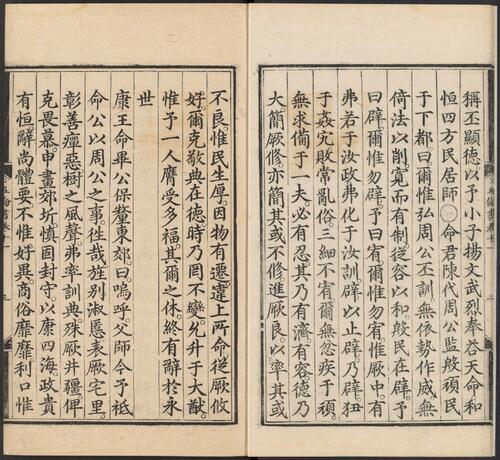 稱丕顯德以予小子揚文武烈奉荅天命和
恒四方民居師〇命君陳代周公監殷頑民
于下都曰爾惟弘周公丕訓無依勢作威無
倚法以削寬而有制從容以和殷民在辟予
曰辟爾惟勿辟予曰宥爾惟勿宥惟厥中有
弗若于汝政弗化于汝訓辟以止辟乃辟狃
于姦宄敗常亂俗三細不宥爾無忿疾于頑
無求備于一夫必有忍其乃有濟有容德乃
大簡厥修亦簡其或不修進厥良以率其或
不良惟民生厚因物有遷違上所命從厥攸
好爾克敬典在德時乃罔不變允升于大猷
惟予一人膺受多福其爾之休終有辭於永
世
康王命畢公保釐東郊曰嗚呼父師今予祗
命公以周公之事徃哉旌別淑慝表厥宅里
彰善癉惡樹之風聲弗率訓典殊厥井疆俾
克畏慕申畫郊圻慎固封守以康四海政貴
有恒辭尚體要不惟好異商俗靡靡利口惟